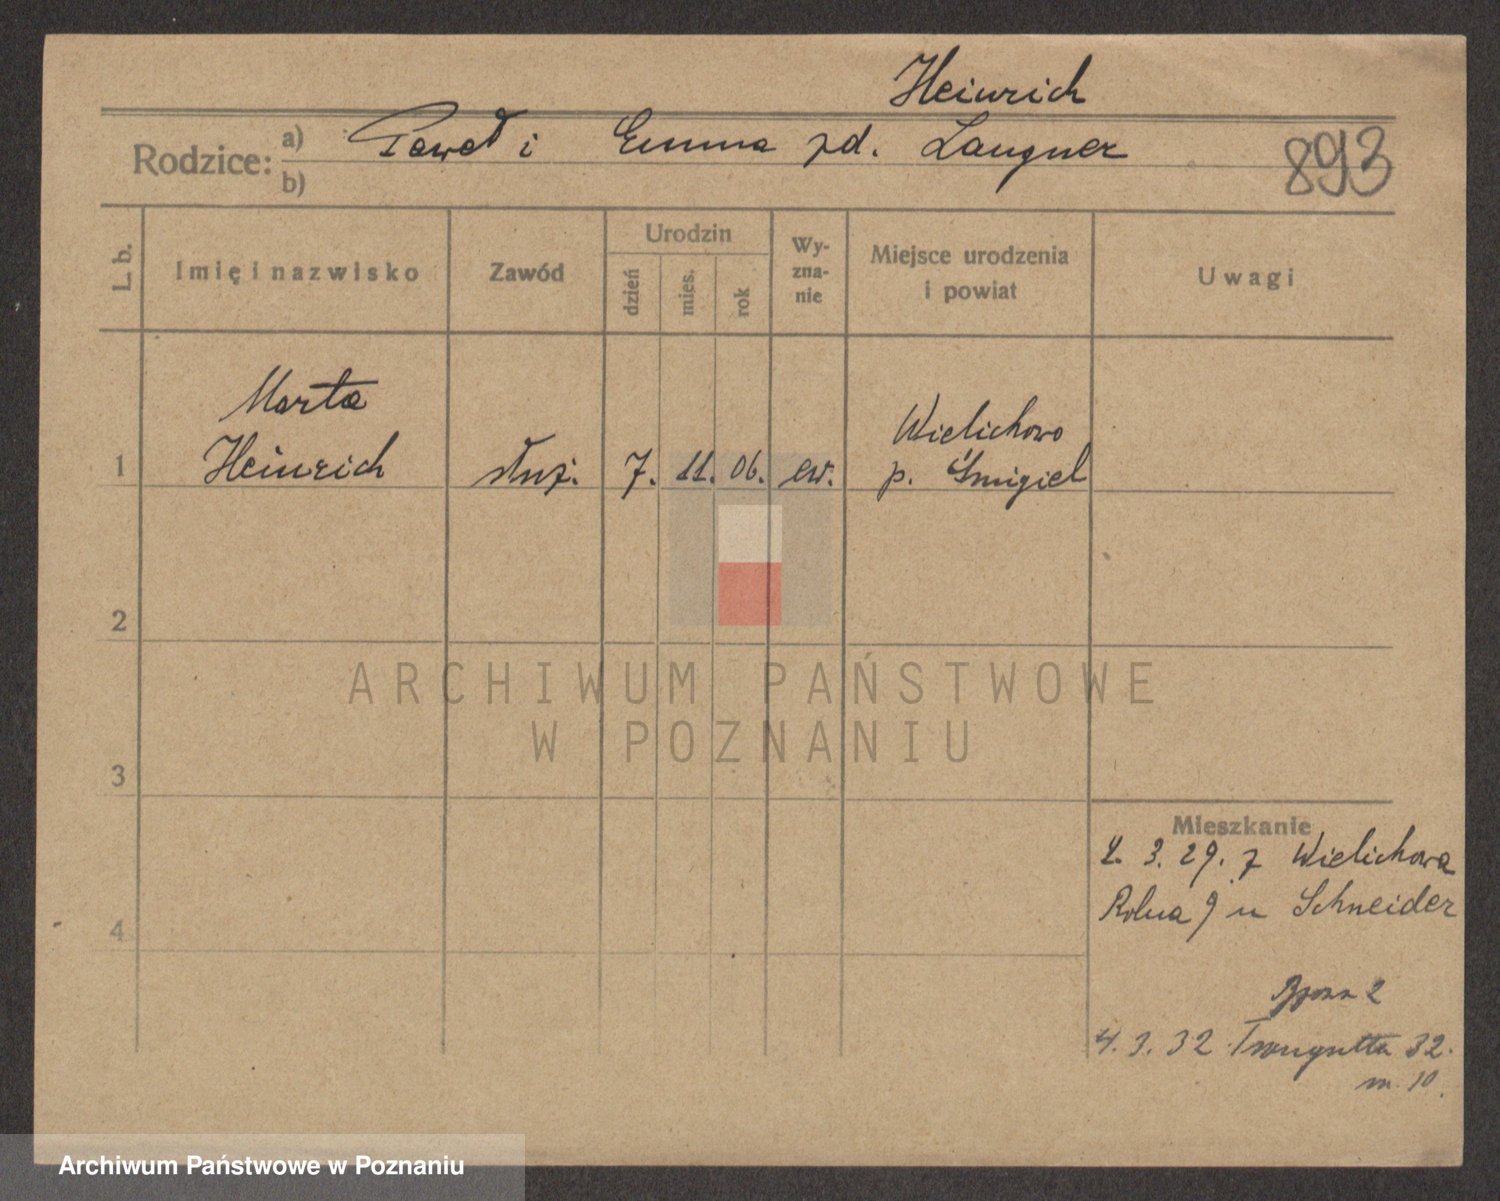 Heinrich
Rodzice: a) Paweł i Emma zd. Langner
b)
893
L. b.
Imię i nazwisko
Zawód
Urodzin
dzień
mies.
rok
Wy-
zna-
nie
Miejsce urodzenia
i powiat
Uwagi
Marta
Wielichowo
1 Heinrich służ. 7. 11. 06. ew. p. Śmigiel
2
ARCHIWUM PAŃSTWOWE
W POZNANIU
3
Mieszkanie
2. 3. 29. z Wielichowa
Rolna 9 u Schneider
4
2
4. 3. 32 Traugutta 32.
m. 10.
Archiwum Państwowe w Poznaniu